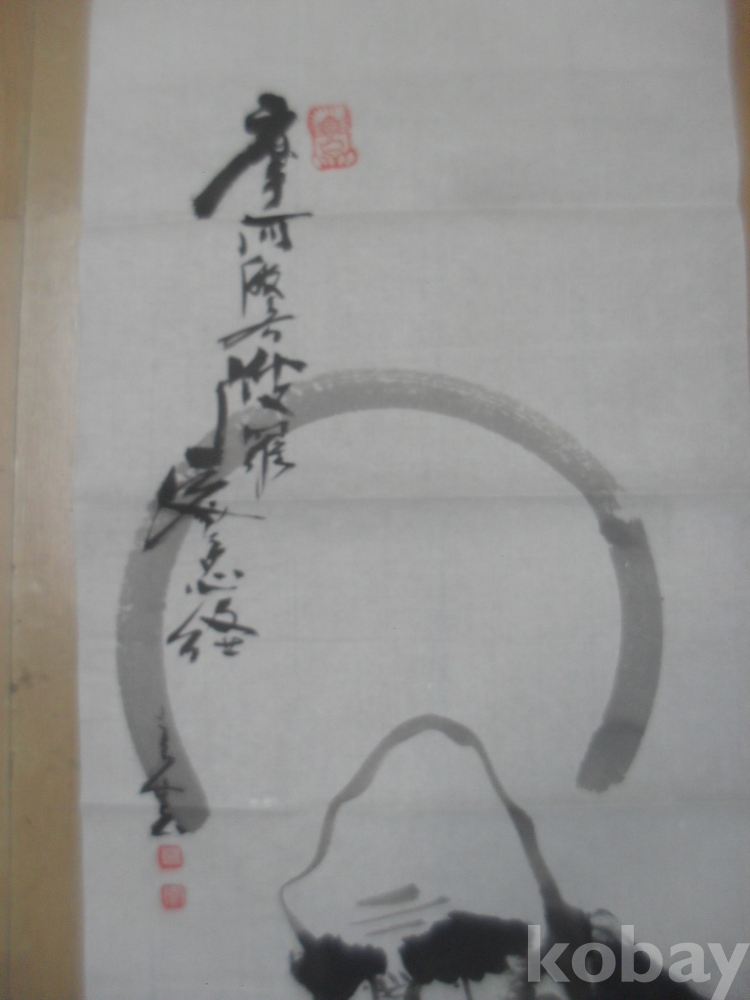 摩訶般若波羅蜜多心經
kobay